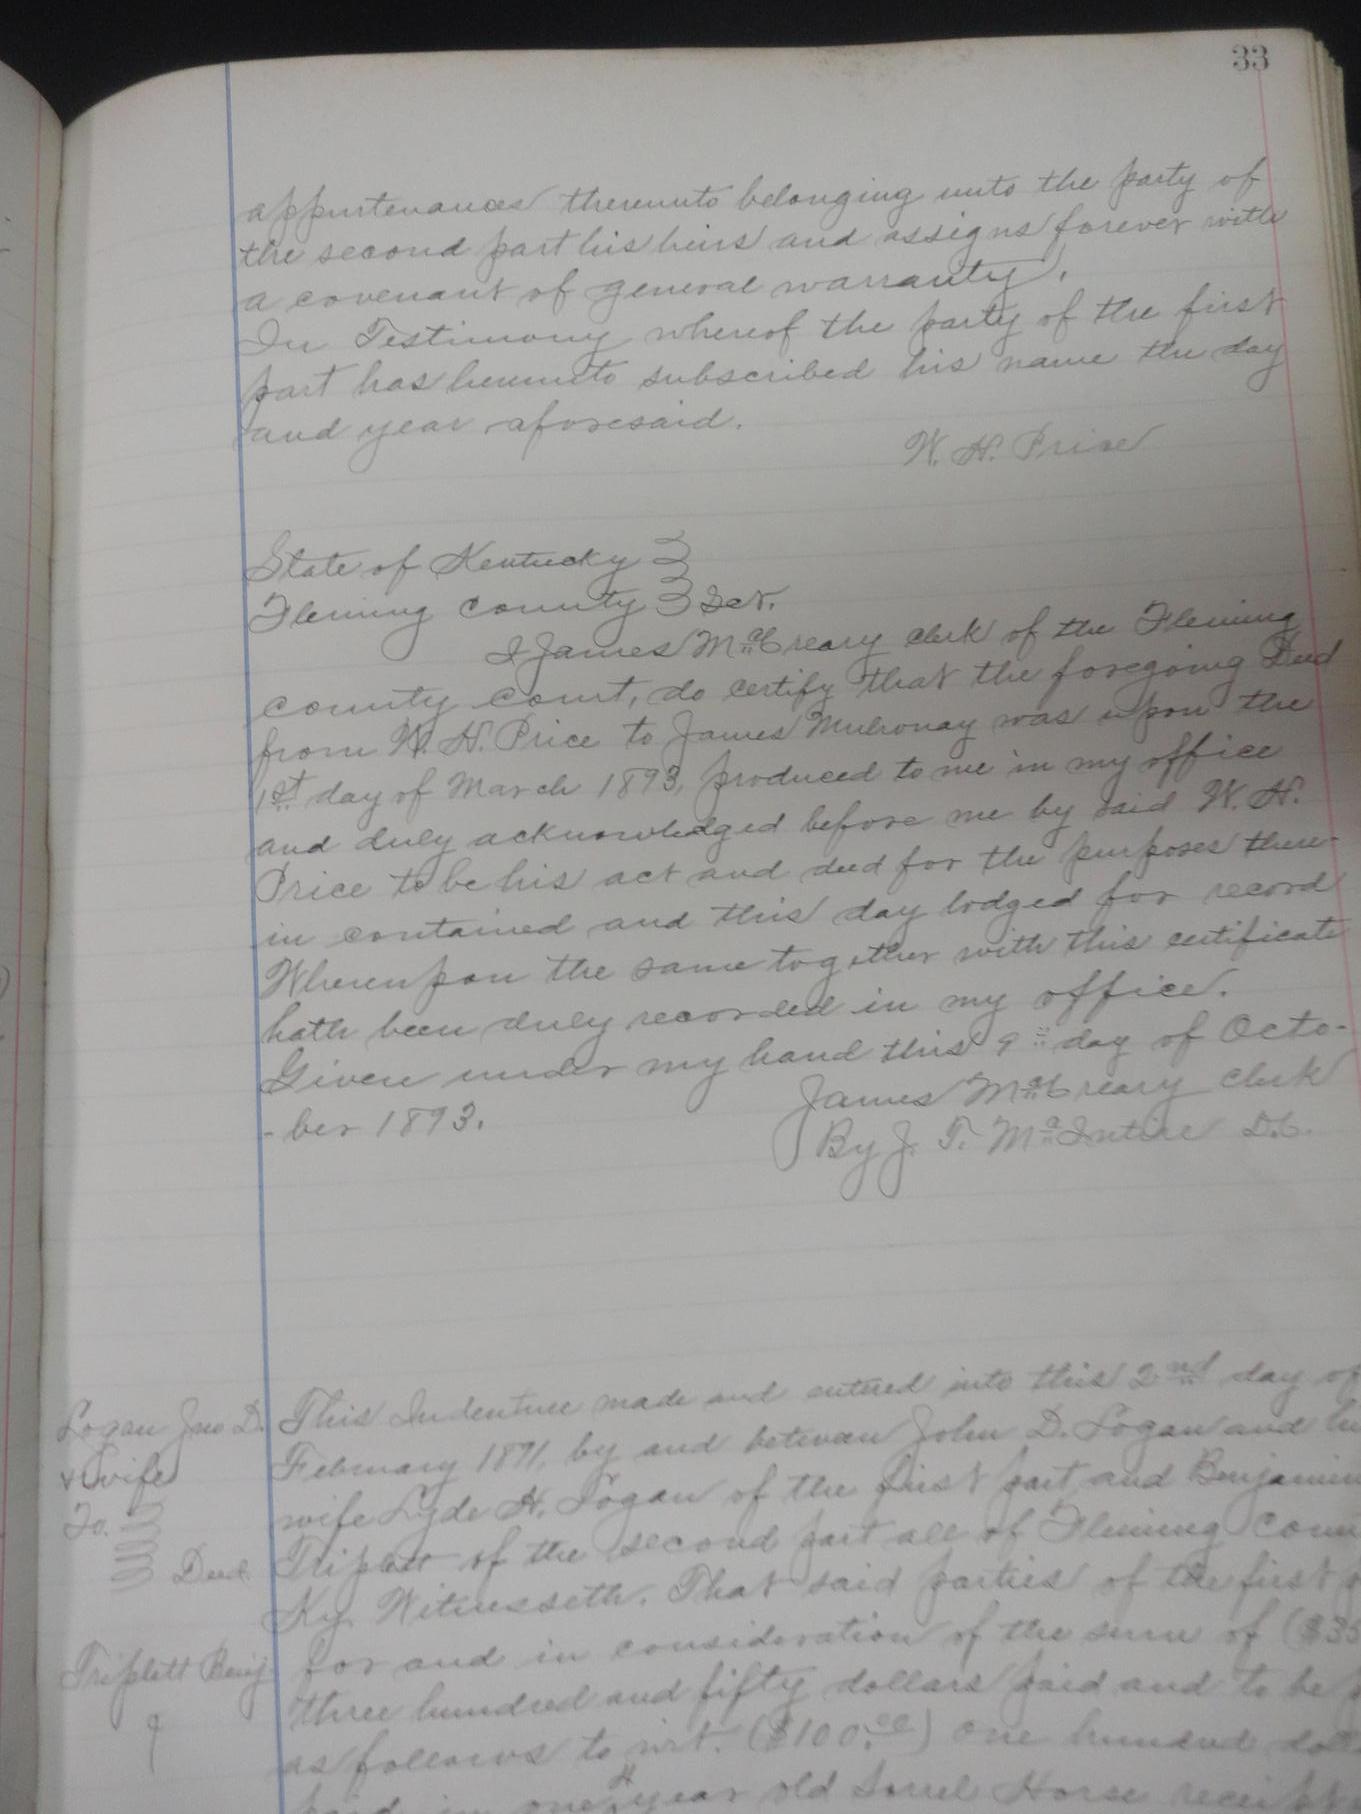 33
appurtenances thereunto belonging unto the party of
the second part his heirs and assigns forever with
a covenant of general warranty.
In Testimony whereof the party of the first
part has hereunto subscribed his name the day
and year aforesaid.
W. H. Price
State of Kentucky
Fleming County Sct.
I James McCreary clerk of the Fleming
county court, do certify that the foregoing Deed
from W. H. Price to James Mulronay was upon the
1st day of March 1893, produced to me in my office
and duly acknowledged before me by said W. H.
Price to be his act and deed for the purposes there-
in contained and this day lodged for record
Whereupon the same together with this certificate
hath been duly recorded in my office.
Given under my hand this 9" day of Octo-
-ber 1893.
James McCreary Clerk
By J. T. McIntire D.C.
Logan Jno D.
& wife
To.
Deed
Triplett Benj
This Indenture made and entered into this 2nd day of
February 1891, by and between John D. Logan and
wife Lyde H. Logan of the first part and Benjamin
Triplett of the second part all of Fleming
Ky. Witnesseth. That said parties of the first
for and in consideration of the sum of ($35
three hundred and fifty dollars paid and to be
as follows to wit. ($100.00) One hundred
paid in one 4 year old Sorrel Horse